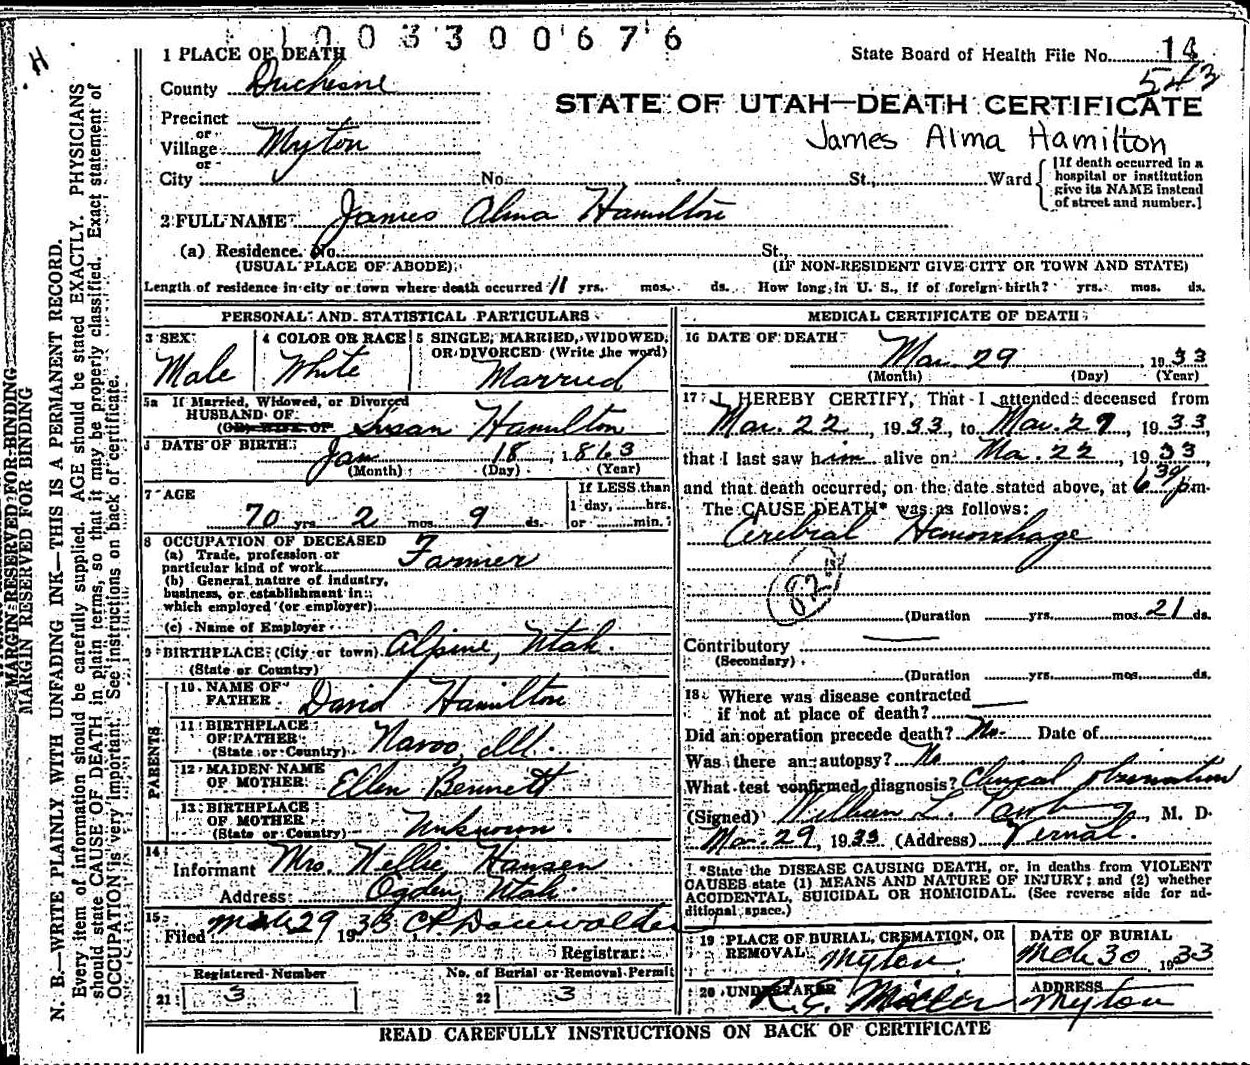 1003300676
1 PLACE OF DEATH
State Board of Health File No. 14
543
County Duchesne
STATE OF UTAH—DEATH CERTIFICATE
Precinct
or
Village Myton
James Alma Hamilton
or
City No. St., Ward
[If death occurred in a
hospital or institution
give its NAME instead
of street and number.]
2 FULL NAME James Alma Hamilton
(a) Residence. No. St.
(USUAL PLACE OF ABODE) (IF NON-RESIDENT GIVE CITY OR TOWN AND STATE)
Length of residence in city or town where death occurred 11 yrs. mos. ds. How long in U. S., if of foreign birth? yrs. mos. ds.
PERSONAL AND STATISTICAL PARTICULARS
3 SEX
Male
4 COLOR OR RACE
White
5 SINGLE, MARRIED, WIDOWED,
OR DIVORCED (Write the word)
Married
5a If Married, Widowed, or Divorced
HUSBAND OF
(OR) WIFE OF Susan Hamilton
DATE OF BIRTH Jan 18, 1863
(Month) (Day) (Year)
7 AGE
70 yrs. 2 mos. 9 ds.
If LESS than
1 day, hrs.
or min.
8 OCCUPATION OF DECEASED
(a) Trade, profession or
particular kind of work Farmer
(b) General nature of industry,
business, or establishment in
which employed (or employer)
(c) Name of Employer
9 BIRTHPLACE (City or town) Alpine, Utah.
(State or Country)
PARENTS
10 NAME OF
FATHER David Hamilton
11 BIRTHPLACE
OF FATHER
(State or Country) Navoo, Ill.
12 MAIDEN NAME
OF MOTHER Ellen Bennett
13 BIRTHPLACE
OF MOTHER
(State or Country) Unknown.
14
Informant Mrs. Nellie Hansen
Address Ogden, Utah.
15
Filed 29 1933
Registrar
Registered Number
21 3
No. of Burial or Removal Permit
22 3
MEDICAL CERTIFICATE OF DEATH
16 DATE OF DEATH
Mar. 29, 1933
(Month) (Day) (Year)
17 I HEREBY CERTIFY, That I attended deceased from
Mar. 22, 1933, to Mar. 29, 1933,
that I last saw him alive on Mar. 22, 1933,
and that death occurred, on the date stated above, at 6 30 p.m.
The CAUSE DEATH* was as follows:
Cerebral Hemorrhage
82
(Duration yrs. mos. 21 ds.
Contributory
(Secondary)
(Duration yrs. mos. ds.
18 Where was disease contracted
if not at place of death?
Did an operation precede death? No. Date of
Was there an autopsy? No
What test confirmed diagnosis? Clinical observation
(Signed) William L., M. D.
Mar. 29, 1933 (Address) Vernal.
*State the DISEASE CAUSING DEATH, or, in deaths from VIOLENT
CAUSES state (1) MEANS AND NATURE OF INJURY; and (2) whether
ACCIDENTAL, SUICIDAL OR HOMICIDAL. (See reverse side for ad-
ditional space.)
19 PLACE OF BURIAL, CREMATION, OR
REMOVAL Myton
DATE OF BURIAL
Mch 30 1933
20 UNDERTAKER
ADDRESS
Myton
READ CAREFULLY INSTRUCTIONS ON BACK OF CERTIFICATE
MARGIN RESERVED FOR BINDING
MARGIN RESERVED FOR BINDING
N. B.—WRITE PLAINLY WITH UNFADING INK—THIS IS A PERMANENT RECORD.
Every item of information should be carefully supplied. AGE should be stated EXACTLY. PHYSICIANS
should state CAUSE OF DEATH in plain terms, so that it may be properly classified. Exact statement of
OCCUPATION is very important. See instructions on back of certificate.
H